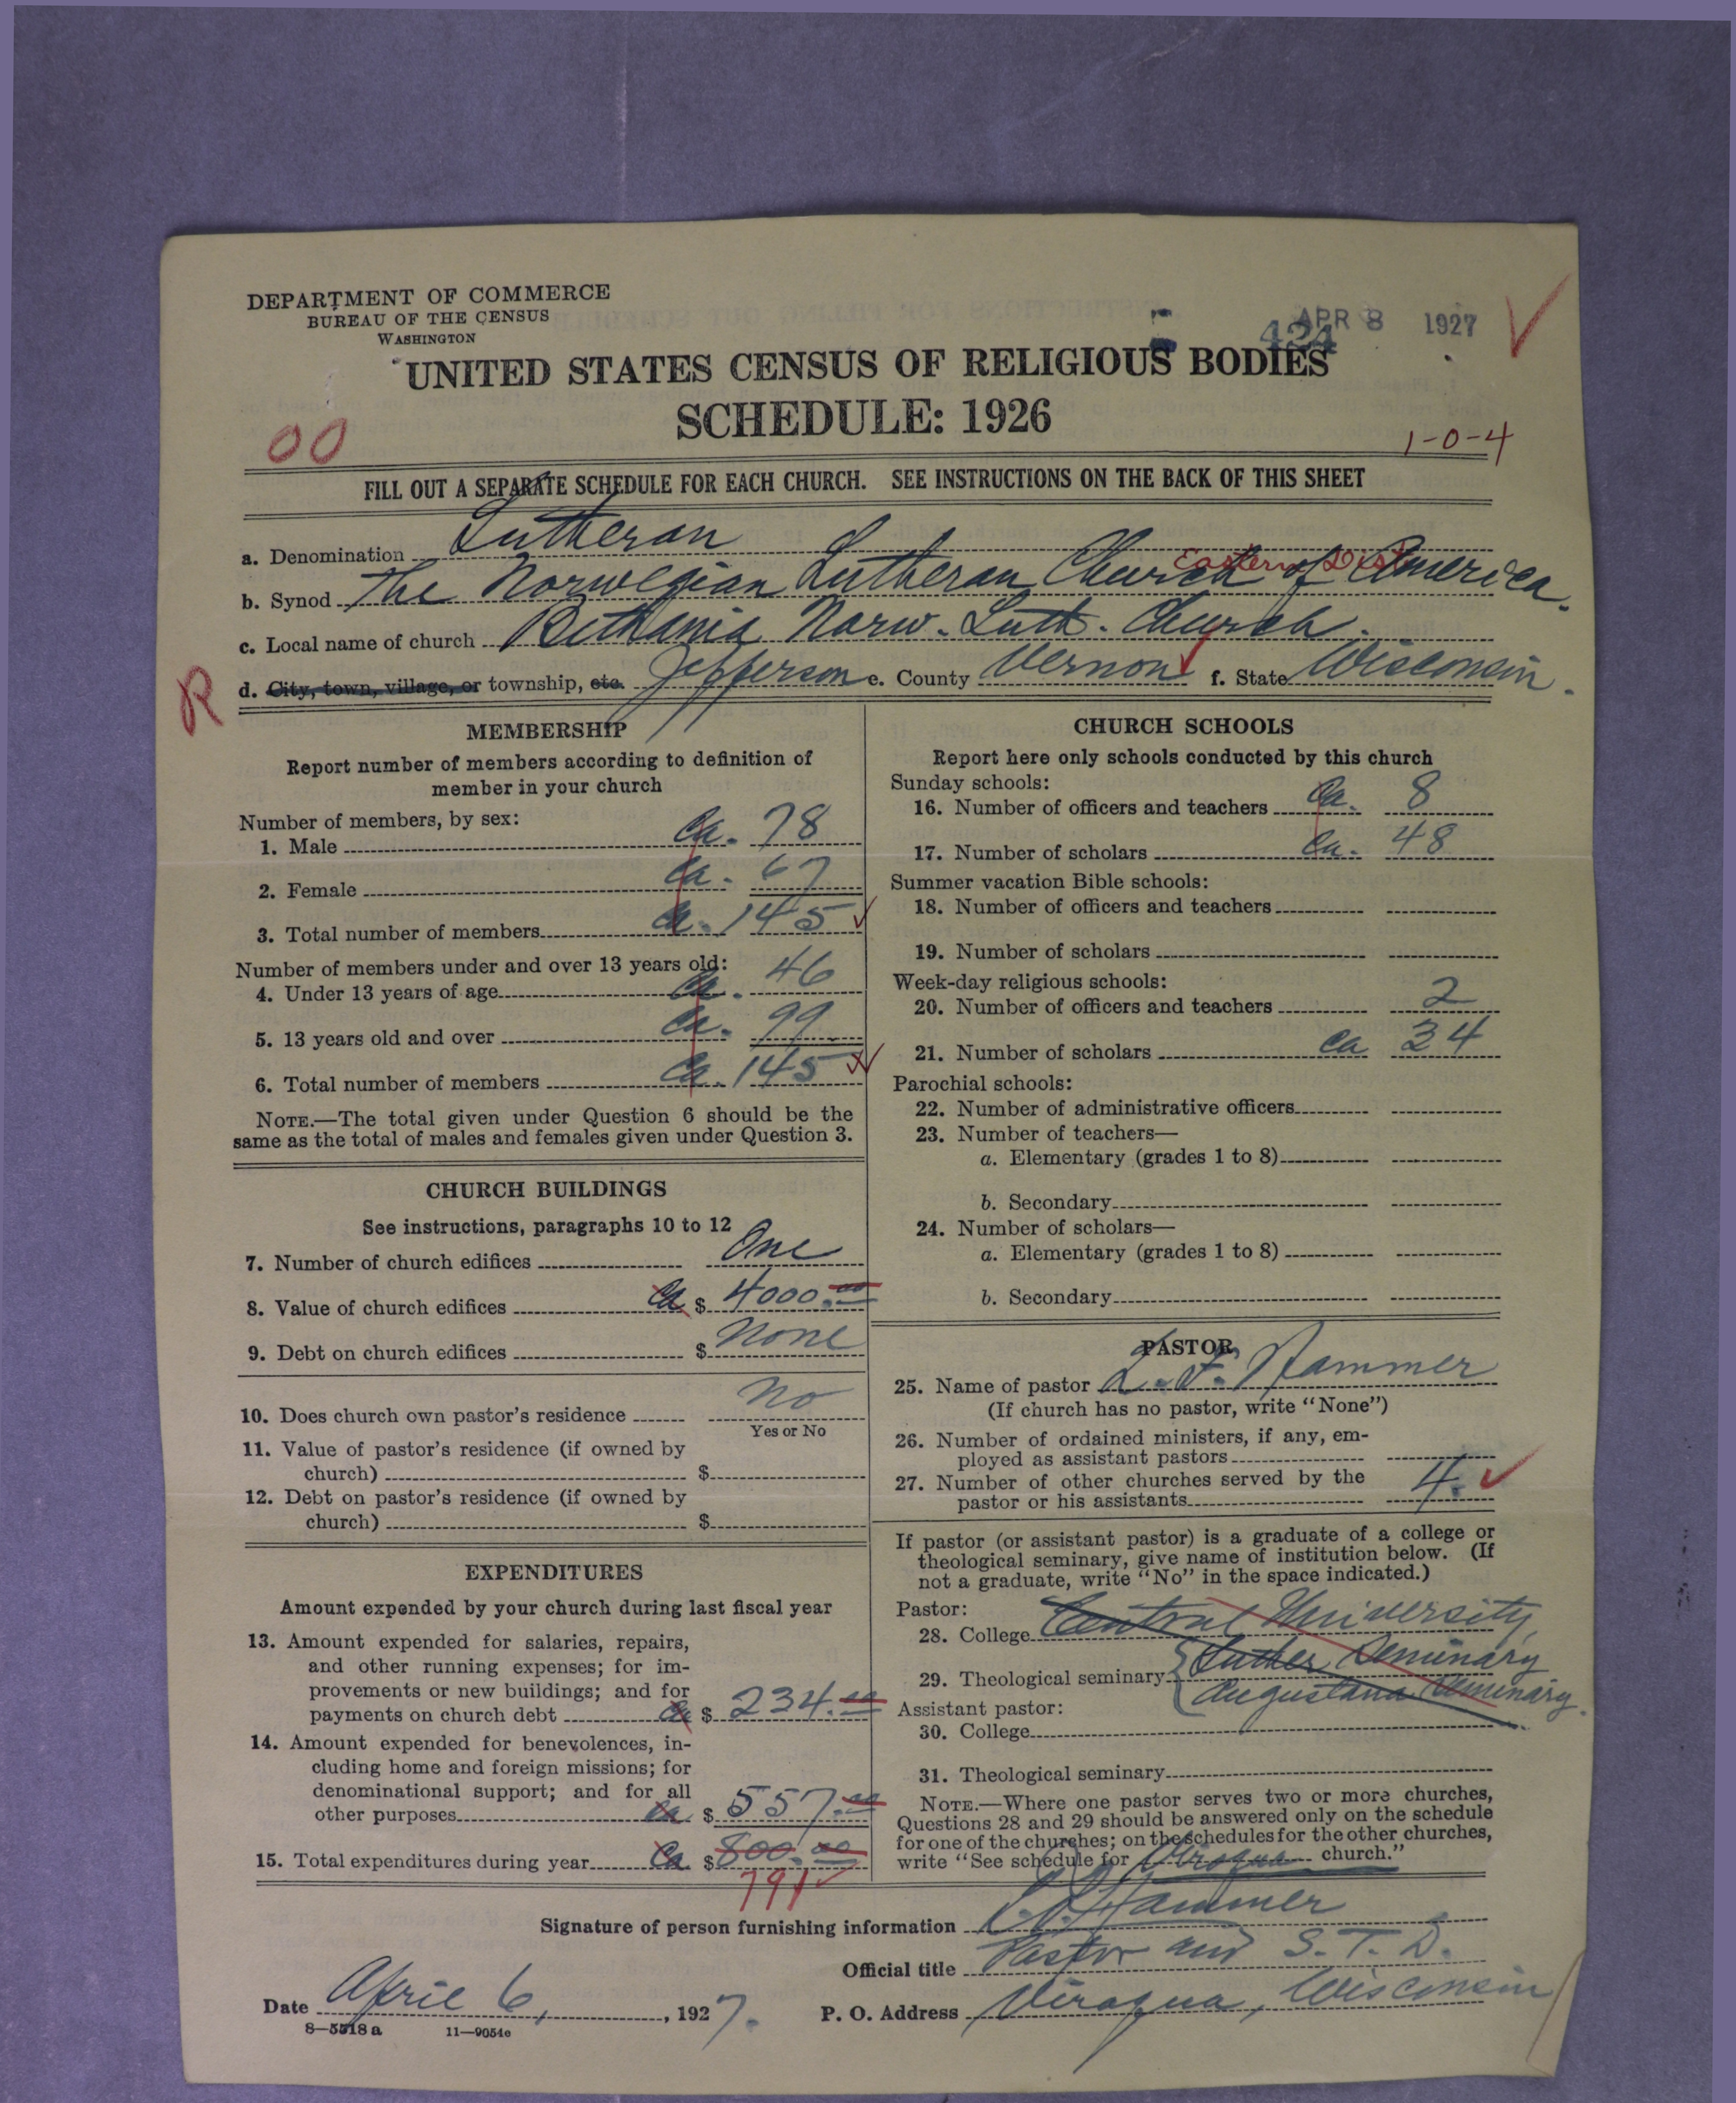 DEPARTMENT OF COMMERCE
BUREAU OF THE CENSUS
WASHINGTON
APR 8 1927
424
UNITED STATES CENSUS OF RELIGIOUS BODIES
SCHEDULE: 1926
00
1-0-4
FILL OUT A SEPARATE SCHEDULE FOR EACH CHURCH. SEE INSTRUCTIONS ON THE BACK OF THIS SHEET
a. Denomination Lutheran
Eastern Dist
b. Synod The Norwegian Lutheran Church of America.
c. Local name of church Bethania Norw. Luth. Church.
R
d. City, town, village, or township, etc. Jefferson e. County Vernon f. State Wisconsin.
MEMBERSHIP
Report number of members according to definition of
member in your church
Number of members, by sex:
1. Male Ca. 78
2. Female Ca. 67
3. Total number of members Ca. 145
Number of members under and over 13 years old:
4. Under 13 years of age Ca. 46
5. 13 years old and over Ca. 99
6. Total number of members Ca. 145
NOTE.—The total given under Question 6 should be the
same as the total of males and females given under Question 3.
CHURCH BUILDINGS
See instructions, paragraphs 10 to 12
7. Number of church edifices One
8. Value of church edifices Ca $ 4000.00
9. Debt on church edifices $ None
10. Does church own pastor's residence No
Yes or No
11. Value of pastor's residence (if owned by
church) $
12. Debt on pastor's residence (if owned by
church) $
EXPENDITURES
Amount expended by your church during last fiscal year
13. Amount expended for salaries, repairs,
and other running expenses; for im-
provements or new buildings; and for
payments on church debt Ca $ 234.00
14. Amount expended for benevolences, in-
cluding home and foreign missions; for
denominational support; and for all
other purposes Ca $ 557.00
15. Total expenditures during year Ca $ 800.00
791
CHURCH SCHOOLS
Report here only schools conducted by this church
Sunday schools:
16. Number of officers and teachers Ca. 8
17. Number of scholars Ca. 48
Summer vacation Bible schools:
18. Number of officers and teachers
19. Number of scholars
Week-day religious schools:
20. Number of officers and teachers 2
21. Number of scholars Ca 34
Parochial schools:
22. Number of administrative officers
23. Number of teachers—
a. Elementary (grades 1 to 8)
b. Secondary
24. Number of scholars—
a. Elementary (grades 1 to 8)
b. Secondary
PASTOR
25. Name of pastor L. F. Hammer
(If church has no pastor, write "None")
26. Number of ordained ministers, if any, em-
ployed as assistant pastors
27. Number of other churches served by the
pastor or his assistants 4.
If pastor (or assistant pastor) is a graduate of a college or
theological seminary, give name of institution below. (If
not a graduate, write "No" in the space indicated.)
Pastor:
28. College Central University,
29. Theological seminary Luther Seminary
Augustana Seminary.
Assistant pastor:
30. College
31. Theological seminary
NOTE.—Where one pastor serves two or more churches,
Questions 28 and 29 should be answered only on the schedule
for one of the churches; on the schedules for the other churches,
write "See schedule for Viroqua church."
Signature of person furnishing information Hammer
Official title Pastor and S.T.D.
Date April 6, 1927. P. O. Address Viroqua, Wisconsin
8—5518 a 11—9054e